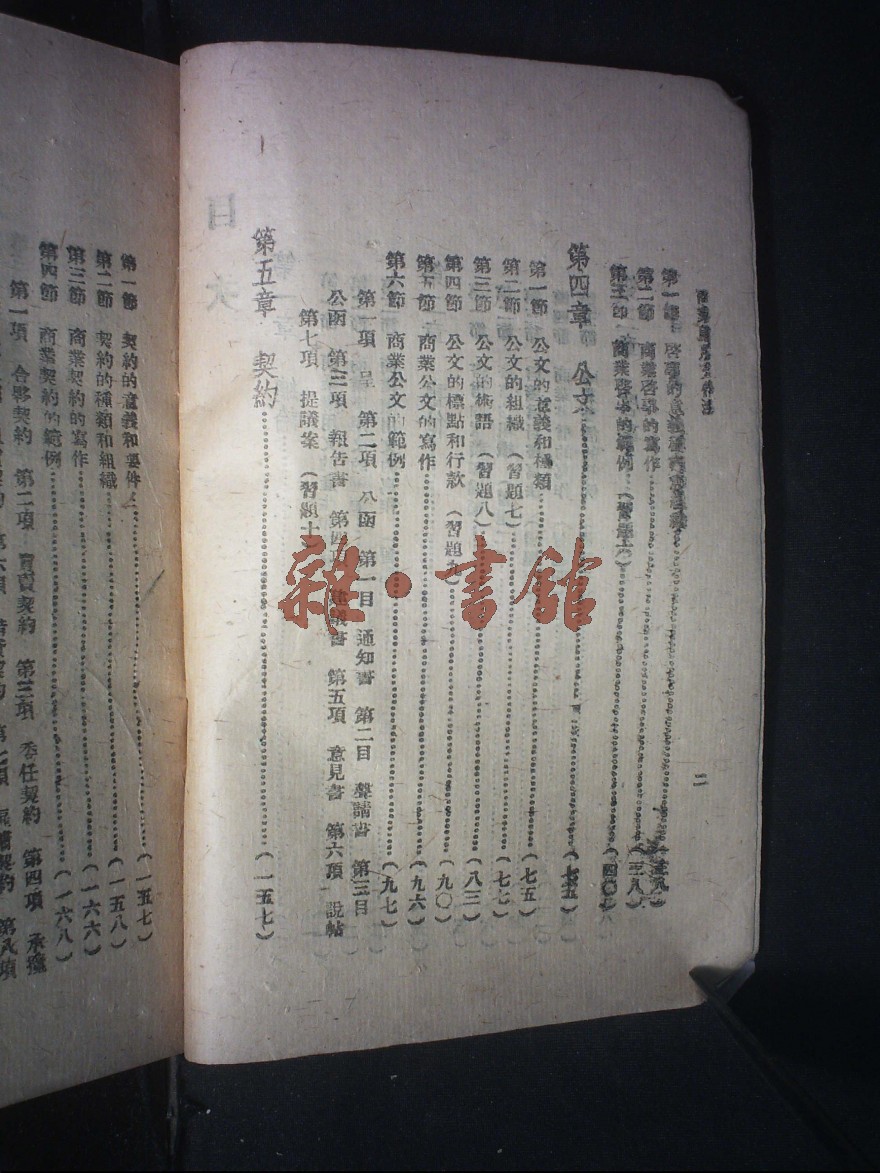 二
第一節 啓事的意義
第二節 商業啓事的寫作
第三節 商業啓事的範例
第四章 公文
第一節 公文的意義和種類(七五)
第二節 公文的組織(習題七)(七七)
第三節 公文的術語(習題八)(八三)
第四節 公文的標點和行款(習題九)(九〇)
第五節 商業公文的寫作(九六)
第六節 商業公文的範例(九七)
第一項 呈 第二項 公函 第一目 通知書 第二目 聲請書 第三目
公函 第三項 報告書 第四項 建議書 第五項 意見書 第六項 說帖
第七項 提議案(習題十)
第五章 契約(一五七)
第一節 契約的意義和要件(一五七)
第二節 契約的種類和組織(一五八)
第三節 商業契約的寫作(一六六)
第四節 商業契約的範例(一六八)
第一項 合夥契約 第二項 買賣契約 第三項 委任契約 第四項 承攬
雜·書館